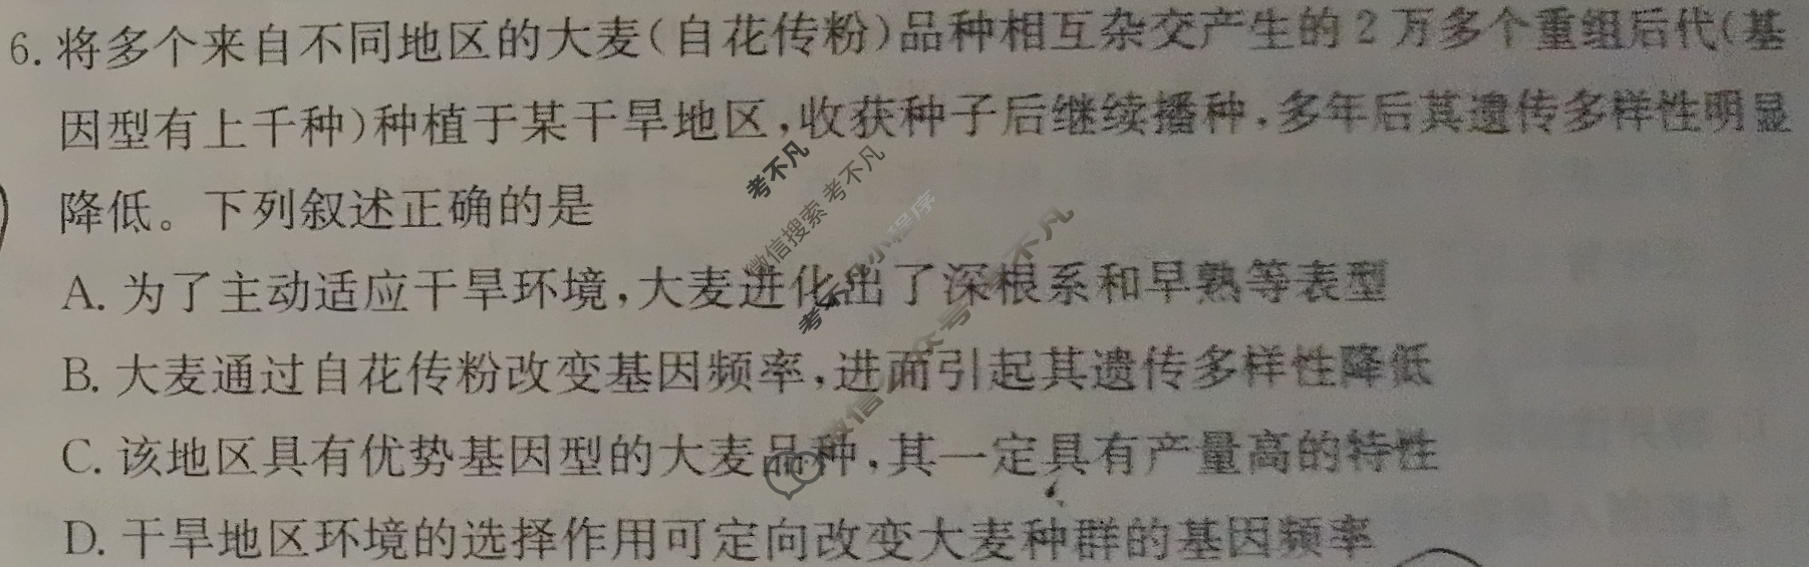 6. 将多个来自不同地区的大麦(自花传粉)品种相互杂交产生的2万多个重组后代(基
因型有上千种)种植于某干旱地区,收获种子后继续播种,多年后其遗传多样性明显
降低。下列叙述正确的是
A. 为了主动适应干旱环境,大麦进化出了深根系和早熟等表型
B. 大麦通过自花传粉改变基因频率,进而引起其遗传多样性降低
C. 该地区具有优势基因型的大麦品种,其一定具有产量高的特性
D. 干旱地区环境的选择作用可定向改变大麦种群的基因频率
考不凡
微信搜索 考不凡
小程序
不凡
微信